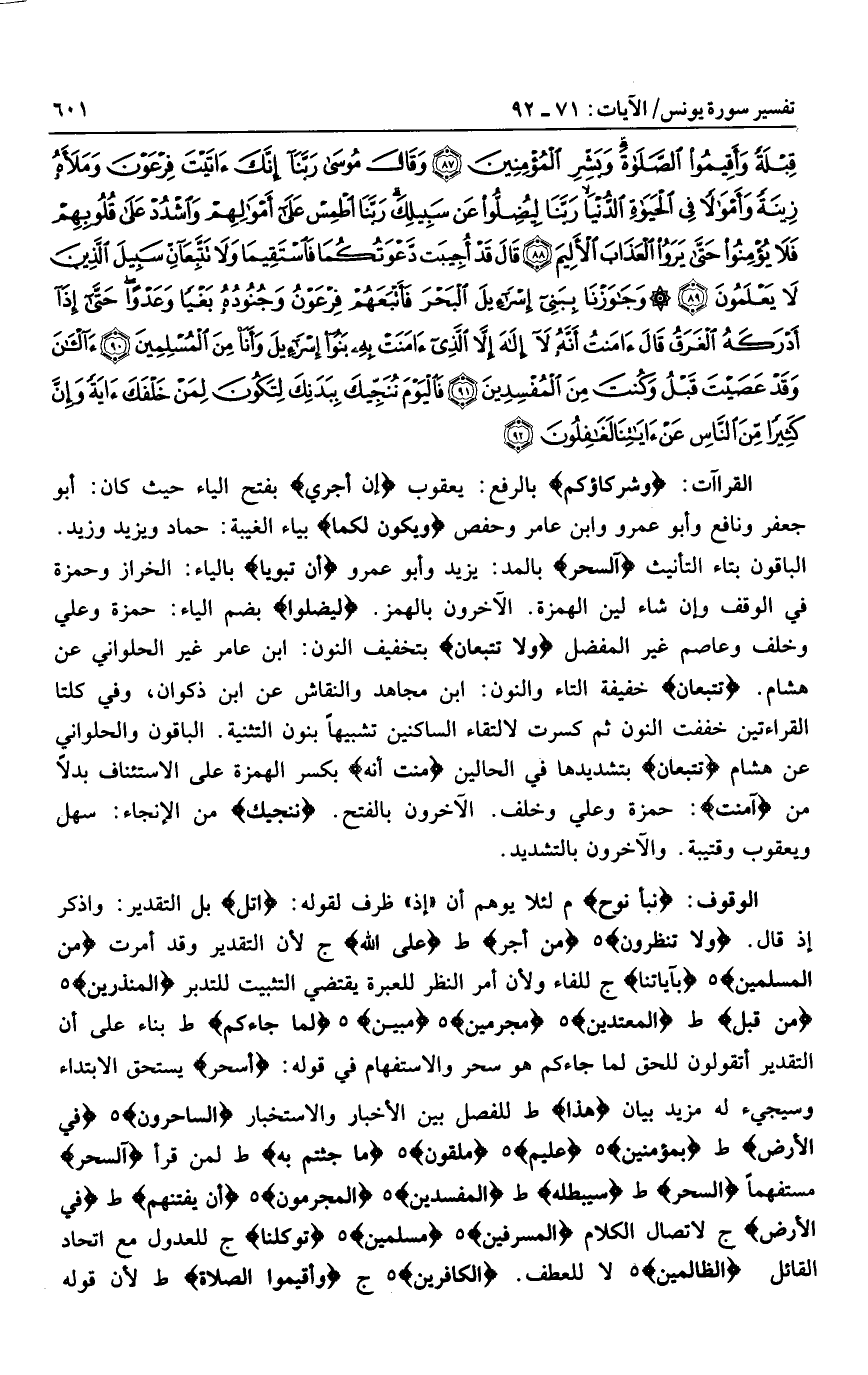 تفسير سورة يونس/ الآيات: ٧١ - ٩٢ ٦٠١
قِبْلَةً وَأَقِيمُوا۟ ٱلصَّلَوٰةَ ۗ وَبَشِّرِ ٱلْمُؤْمِنِينَ ﴿٨٧﴾ وَقَالَ مُوسَىٰ رَبَّنَآ إِنَّكَ ءَاتَيْتَ فِرْعَوْنَ وَمَلَأَهُۥ
زِينَةً وَأَمْوَٰلًا فِى ٱلْحَيَوٰةِ ٱلدُّنْيَا رَبَّنَا لِيُضِلُّوا۟ عَن سَبِيلِكَ ۖ رَبَّنَا ٱطْمِسْ عَلَىٰٓ أَمْوَٰلِهِمْ وَٱشْدُدْ عَلَىٰ قُلُوبِهِمْ
فَلَا يُؤْمِنُوا۟ حَتَّىٰ يَرَوُا۟ ٱلْعَذَابَ ٱلْأَلِيمَ ﴿٨٨﴾ قَالَ قَدْ أُجِيبَت دَّعْوَتُكُمَا فَٱسْتَقِيمَا وَلَا تَتَّبِعَآنِّ سَبِيلَ ٱلَّذِينَ
لَا يَعْلَمُونَ ﴿٨٩﴾ ۞ وَجَٰوَزْنَا بِبَنِىٓ إِسْرَٰٓءِيلَ ٱلْبَحْرَ فَأَتْبَعَهُمْ فِرْعَوْنُ وَجُنُودُهُۥ بَغْيًا وَعَدْوًا ۖ حَتَّىٰٓ إِذَآ
أَدْرَكَهُ ٱلْغَرَقُ قَالَ ءَامَنتُ أَنَّهُۥ لَآ إِلَٰهَ إِلَّا ٱلَّذِىٓ ءَامَنَتْ بِهِۦ بَنُوٓا۟ إِسْرَٰٓءِيلَ وَأَنَا۠ مِنَ ٱلْمُسْلِمِينَ ﴿٩٠﴾ ءَآلْـَٰٔنَ
وَقَدْ عَصَيْتَ قَبْلُ وَكُنتَ مِنَ ٱلْمُفْسِدِينَ ﴿٩١﴾ فَٱلْيَوْمَ نُنَجِّيكَ بِبَدَنِكَ لِتَكُونَ لِمَنْ خَلْفَكَ ءَايَةً ۚ وَإِنَّ
كَثِيرًا مِّنَ ٱلنَّاسِ عَنْ ءَايَٰتِنَا لَغَٰفِلُونَ ﴿٩٢﴾
القراآت: ﴿وشركاؤكم﴾ بالرفع: يعقوب ﴿إن أجري﴾ بفتح الياء حيث كان: أبو
جعفر ونافع وأبو عمرو وابن عامر وحفص ﴿ويكون لكما﴾ بياء الغيبة: حماد ويزيد وزيد.
الباقون بتاء التأنيث ﴿آلسحر﴾ بالمد: يزيد وأبو عمرو ﴿أن تبويا﴾ بالياء: الخراز وحمزة
في الوقف وإن شاء لين الهمزة. الآخرون بالهمز. ﴿ليضلوا﴾ بضم الياء: حمزة وعلي
وخلف وعاصم غير المفضل ﴿ولا تتبعان﴾ بتخفيف النون: ابن عامر غير الحلواني عن
هشام. ﴿تتبعان﴾ خفيفة التاء والنون: ابن مجاهد والنقاش عن ابن ذكوان، وفي كلتا
القراءتين خففت النون ثم كسرت لالتقاء الساكنين تشبيهاً بنون التثنية. الباقون والحلواني
عن هشام ﴿تتبعان﴾ بتشديدها في الحالين ﴿منت أنه﴾ بكسر الهمزة على الاستئناف بدلاً
من ﴿آمنت﴾: حمزة وعلي وخلف. الآخرون بالفتح. ﴿ننجيك﴾ من الإنجاء: سهل
ويعقوب وقتيبة. والآخرون بالتشديد.
الوقوف: ﴿نبأ نوح﴾ م لئلا يوهم أن «إذ» ظرف لقوله: ﴿اتل﴾ بل التقدير: واذكر
إذ قال. ﴿ولا تنظرون﴾ ٥ ﴿من أجر﴾ ط ﴿على الله﴾ ج لأن التقدير وقد أمرت ﴿من
المسلمين﴾ ٥ ﴿بآياتنا﴾ ج للفاء ولأن أمر النظر للعبرة يقتضي التثبيت للتدبر ﴿المنذرين﴾ ٥
﴿من قبل﴾ ط ﴿المعتدين﴾ ٥ ﴿مجرمين﴾ ٥ ﴿مبين﴾ ٥ ﴿لما جاءكم﴾ ط بناء على أن
التقدير أتقولون للحق لما جاءكم هو سحر والاستفهام في قوله: ﴿أسحر﴾ يستحق الابتداء
وسيجيء له مزيد بيان ﴿هذا﴾ ط للفصل بين الأخبار والاستخبار ﴿الساحرون﴾ ٥ ﴿في
الأرض﴾ ط ﴿بمؤمنين﴾ ٥ ﴿عليم﴾ ٥ ﴿ملقون﴾ ٥ ﴿ما جئتم به﴾ ط لمن قرأ ﴿آلسحر﴾
مستفهماً ﴿السحر﴾ ط ﴿سيبطله﴾ ط ﴿المفسدين﴾ ٥ ﴿المجرمون﴾ ٥ ﴿أن يفتنهم﴾ ط ﴿في
الأرض﴾ ج لاتصال الكلام ﴿المسرفين﴾ ٥ ﴿مسلمين﴾ ٥ ﴿توكلنا﴾ ج للعدول مع اتحاد
القائل ﴿الظالمين﴾ ٥ لا للعطف. ﴿الكافرين﴾ ٥ ج ﴿وأقيموا الصلاة﴾ ط لأن قوله